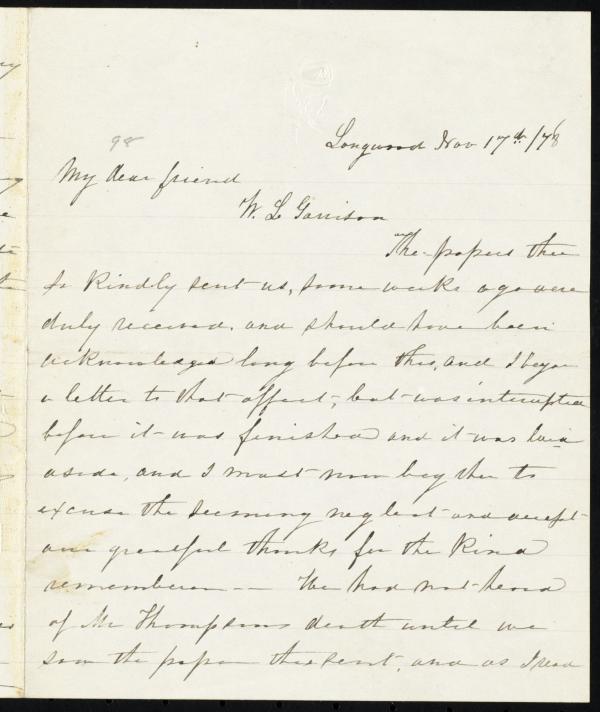 Longwood Nov 17th/78
98
My dear friend
W. L Garrison
The papers thee
so kindly sent us, some weeks ago were
duly received, and should have been
acknowledged long before this, and I began
a letter to that effect, but was interrupted
before it was finished and it was laid
aside, and I must now beg thee to
excuse the seeming neglect and accept
our grateful thanks for the kind
remembrance -- We had not heard
of Mr Thompsons death until we
saw the paper thee sent, and as I read